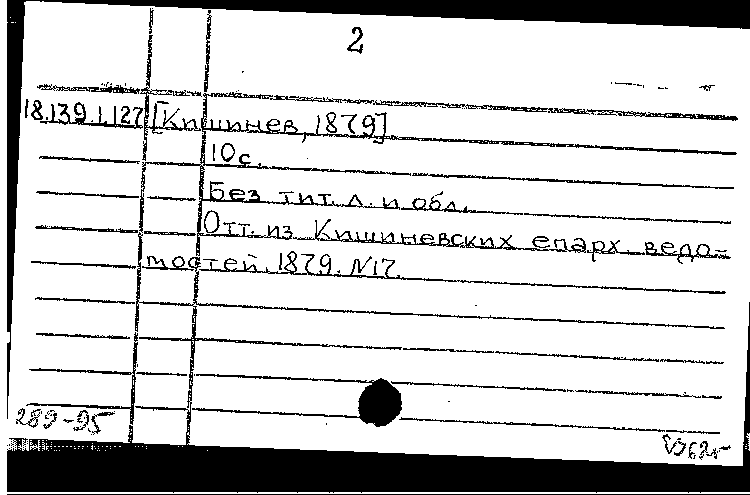 2
18.139.1.127 [Кишинев, 1879]
10с.
Без тит. л. и обл.
Отт. из Кишиневских епарх. ведо-
мостей. 1879. N17.
289-95